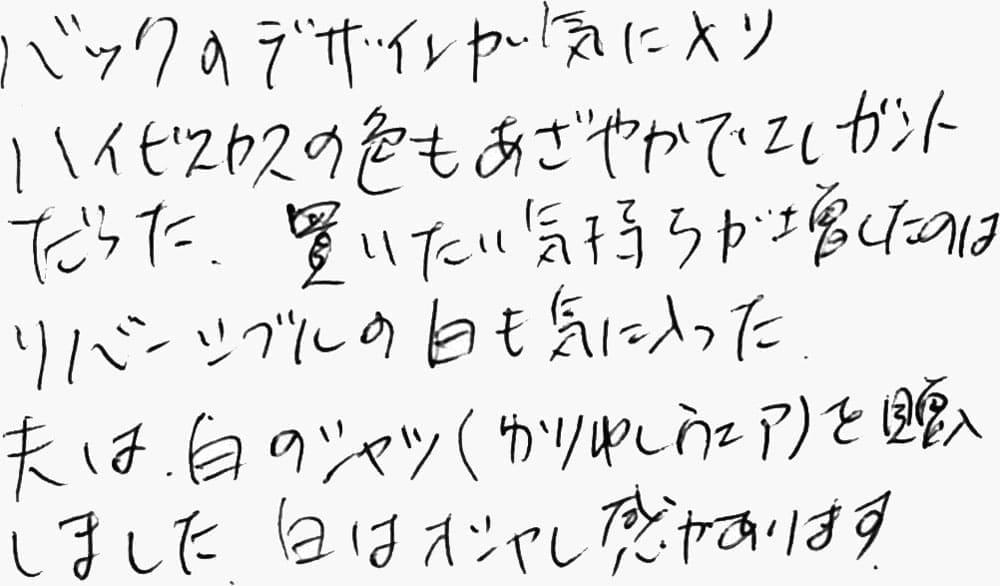 バックのデザインが気に入り
ハイビスカスの色もあざやかでエレガント
だった。買いたい気持ちが増したのは
リバーシブルの白も気に入った。
夫は、白のシャツ(かりゆしウエア)を購入
しました。白はオシャレ感があります。